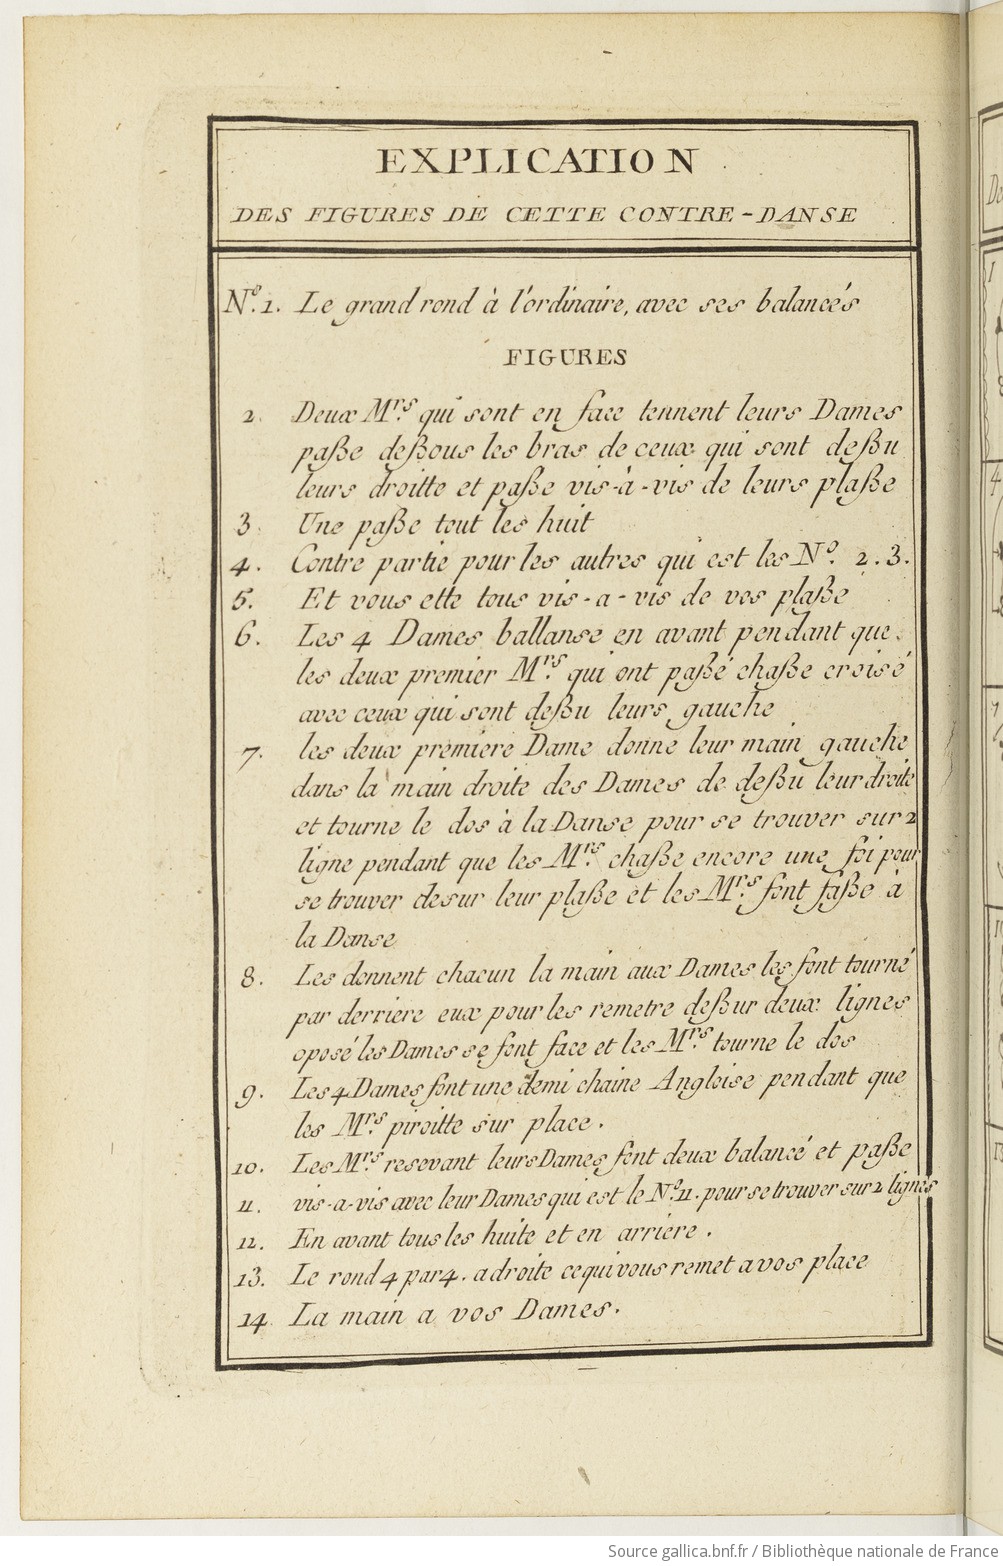 EXPLICATION
DES FIGURES DE CETTE CONTRE-DANSE
N.º 1. Le grand rond à l'ordinaire, avec ses balancés
FIGURES
2. Deux M.rs qui sont en face tennent leurs Dames
paße deßous les bras de ceux qui sont deßu
leurs droitte et paße vis-à-vis de leurs plaße
3. Une paße tout les huit
4. Contre partie pour les autres qui est les N.º 2.3.
5. Et vous ette tous vis-a-vis de vos plaße
6. Les 4 Dames ballanse en avant pendant que
les deux premier M.rs qui ont paßé chaße croisé
avec ceux qui sont deßu leurs gauche
7. les deux premiere Dame donne leur main gauche
dans la main droite des Dames de deßu leur droite
et tourne le dos à la Danse pour se trouver sur 2
ligne pendant que les M.rs chaße encore une foi pour
se trouver desur leur plaße et les M.rs font faße à
la Danse
8. Les donnent chacun la main aux Dames les font tourné
par derriere eux pour les remetre deßur deux lignes
oposé les Dames se font face et les M.rs tourne le dos
9. Les 4 Dames font une demi chaine Angloise pendant que
les M.rs piroitte sur place.
10. Les M.rs resevant leurs Dames font deux balancé et paße
11. vis-a-vis avec leur Dames qui est le N.º 11. pour se trouver sur 2 lignes
12. En avant tous les huite et en arriere.
13. Le rond 4 par 4. a droite ce qui vous remet a vos place
14. La main a vos Dames.
1
4
7
Source gallica.bnf.fr / Bibliothèque nationale de France